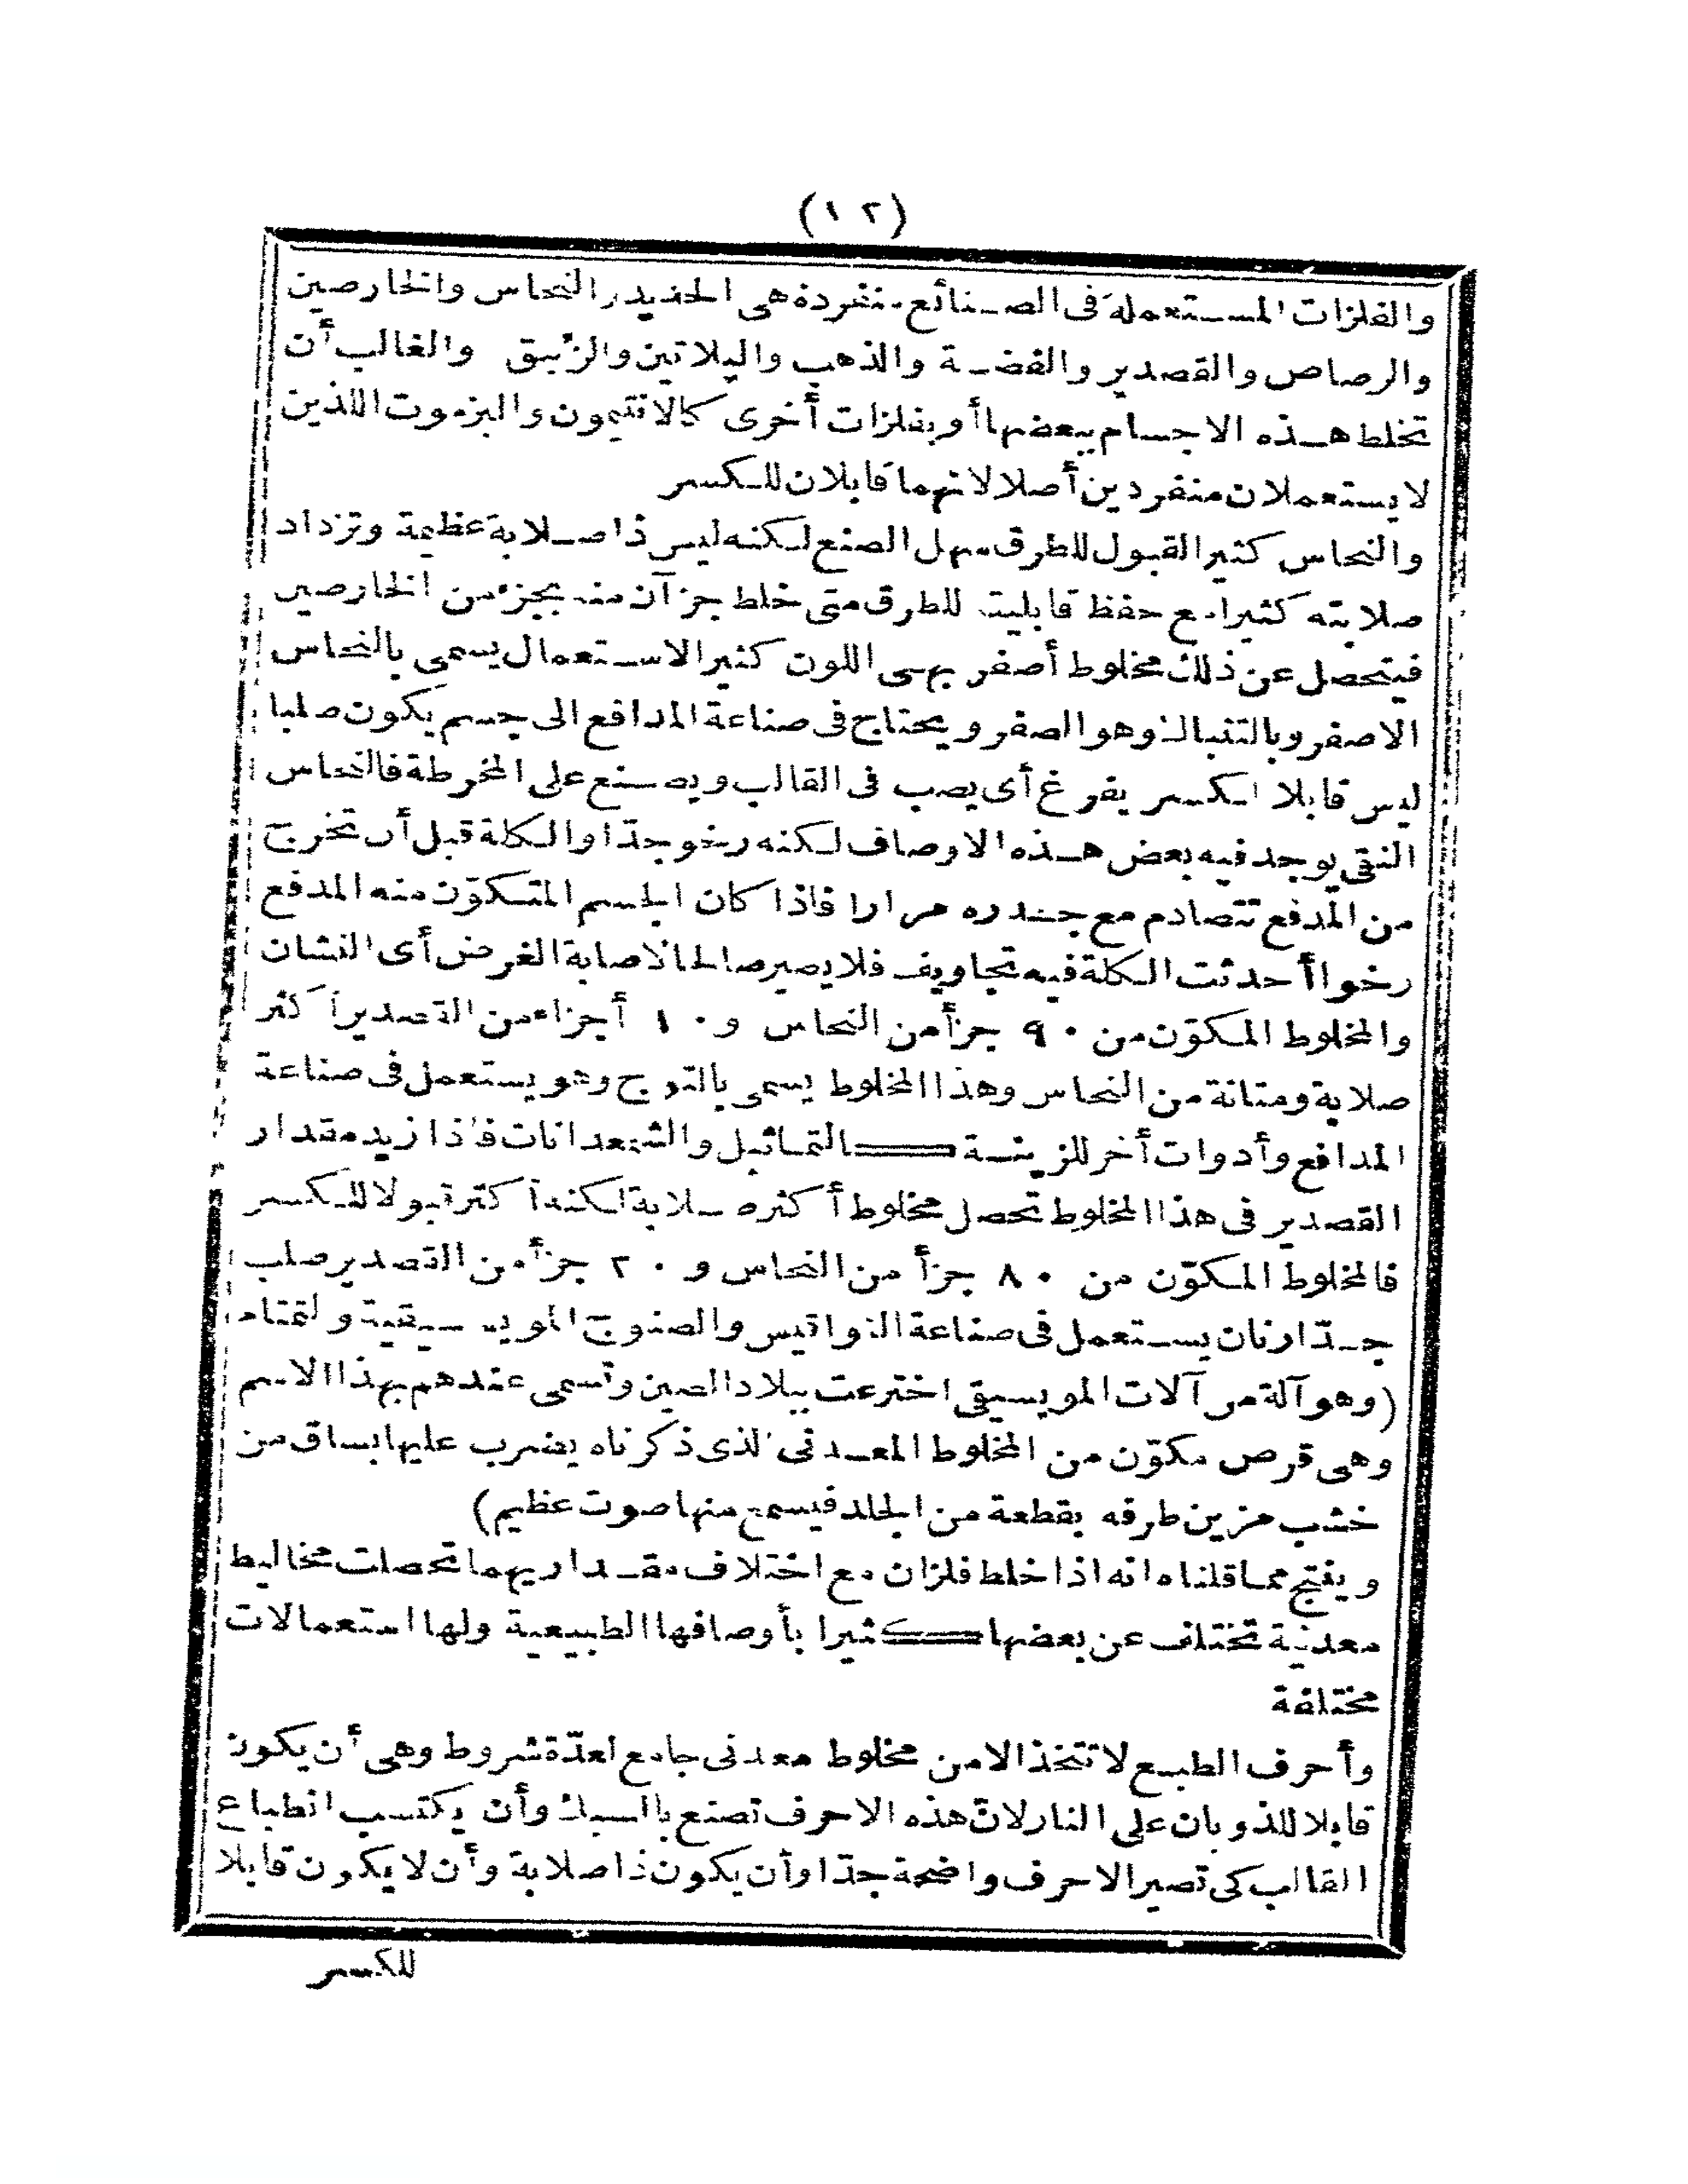 (١٢)
والفلزات المستعملة فى الصنائع منفردة هى الحديد والنحاس والخارصين
والرصاص والقصدير والفضة والذهب والپلاتين والزئبق والغالب أن
تخلط هذه الاجسام ببعضها أو بفلزات أخرى كالانتيمون والبزموت اللذين
لا يستعملان منفردين أصلا لانهما قابلان للكسر
والنحاس كثير القبول للطرق سهل الصنع لكنه ليس ذا صلابة عظيمة وتزداد
صلابته كثيرا مع حفظ قابليته للطرق متى خلط جزآن منه بجزء من الخارصين
فيتحصل عن ذلك مخلوط أصفر بهى اللون كثير الاستعمال يسمى بالنحاس
الاصفر وبالتنباك وهو الصفر ويحتاج فى صناعة المدافع الى جسم يكون صلبا
ليس قابلا للكسر يفرغ أى يصب فى القالب ويصنع على المخرطة فالنحاس
النقى يوجد فيه بعض هذه الاوصاف لكنه رخو جدّا والكلة قبل أن تخرج
من المدفع تتصادم مع جندره مرارا فاذا كان الجسم المتكوّن منه المدفع
رخوا أحدثت الكلة فيه تجاويف فلا يصير صالحا لاصابة الغرض أى النشان
والمخلوط المكوّن من ٩٠ جزأ من النحاس و ١٠ أجزاء من القصدير أكثر
صلابة ومتانة من النحاس وهذا المخلوط يسمى بالتوج وهو يستعمل فى صناعة
المدافع وأدوات أخر للزينة كالتماثيل والشمعدانات فاذا زيد مقدار
القصدير فى هذا المخلوط تحصل مخلوط أكثر صلابة لكنه أكثر قبولا للكسر
فالمخلوط المكوّن من ٨٠ جزأ من النحاس و ٢٠ جزأ من القصدير صلب
جدّا رنان يستعمل فى صناعة النواقيس والصنوج المويسيقية والتمتام
(وهو آلة من آلات المويسيقى اخترعت ببلاد الصين وتسمى عندهم بهذا الاسم
وهى قرص مكوّن من المخلوط المعدنى الذى ذكرناه يضرب عليها بساق من
خشب مزين طرفه بقطعة من الجلد فيسمع منها صوت عظيم)
وينتج مما قلناه انه اذا خلط فلزان مع اختلاف مقداريهما تحصلت مخاليط
معدنية تختلف عن بعضها كثيرا بأوصافها الطبيعية ولها استعمالات
مختلفة
وأحرف الطبع لا تتخذ الا من مخلوط معدنى جامع لعدّة شروط وهى أن يكون
قابلا للذوبان على النار لانّ هذه الاحرف تصنع بالسبك وأن يكتسب انطباع
القالب كى تصير الاحرف واضحة جدّا وأن يكون ذا صلابة وأن لا يكون قابلا
للكسر